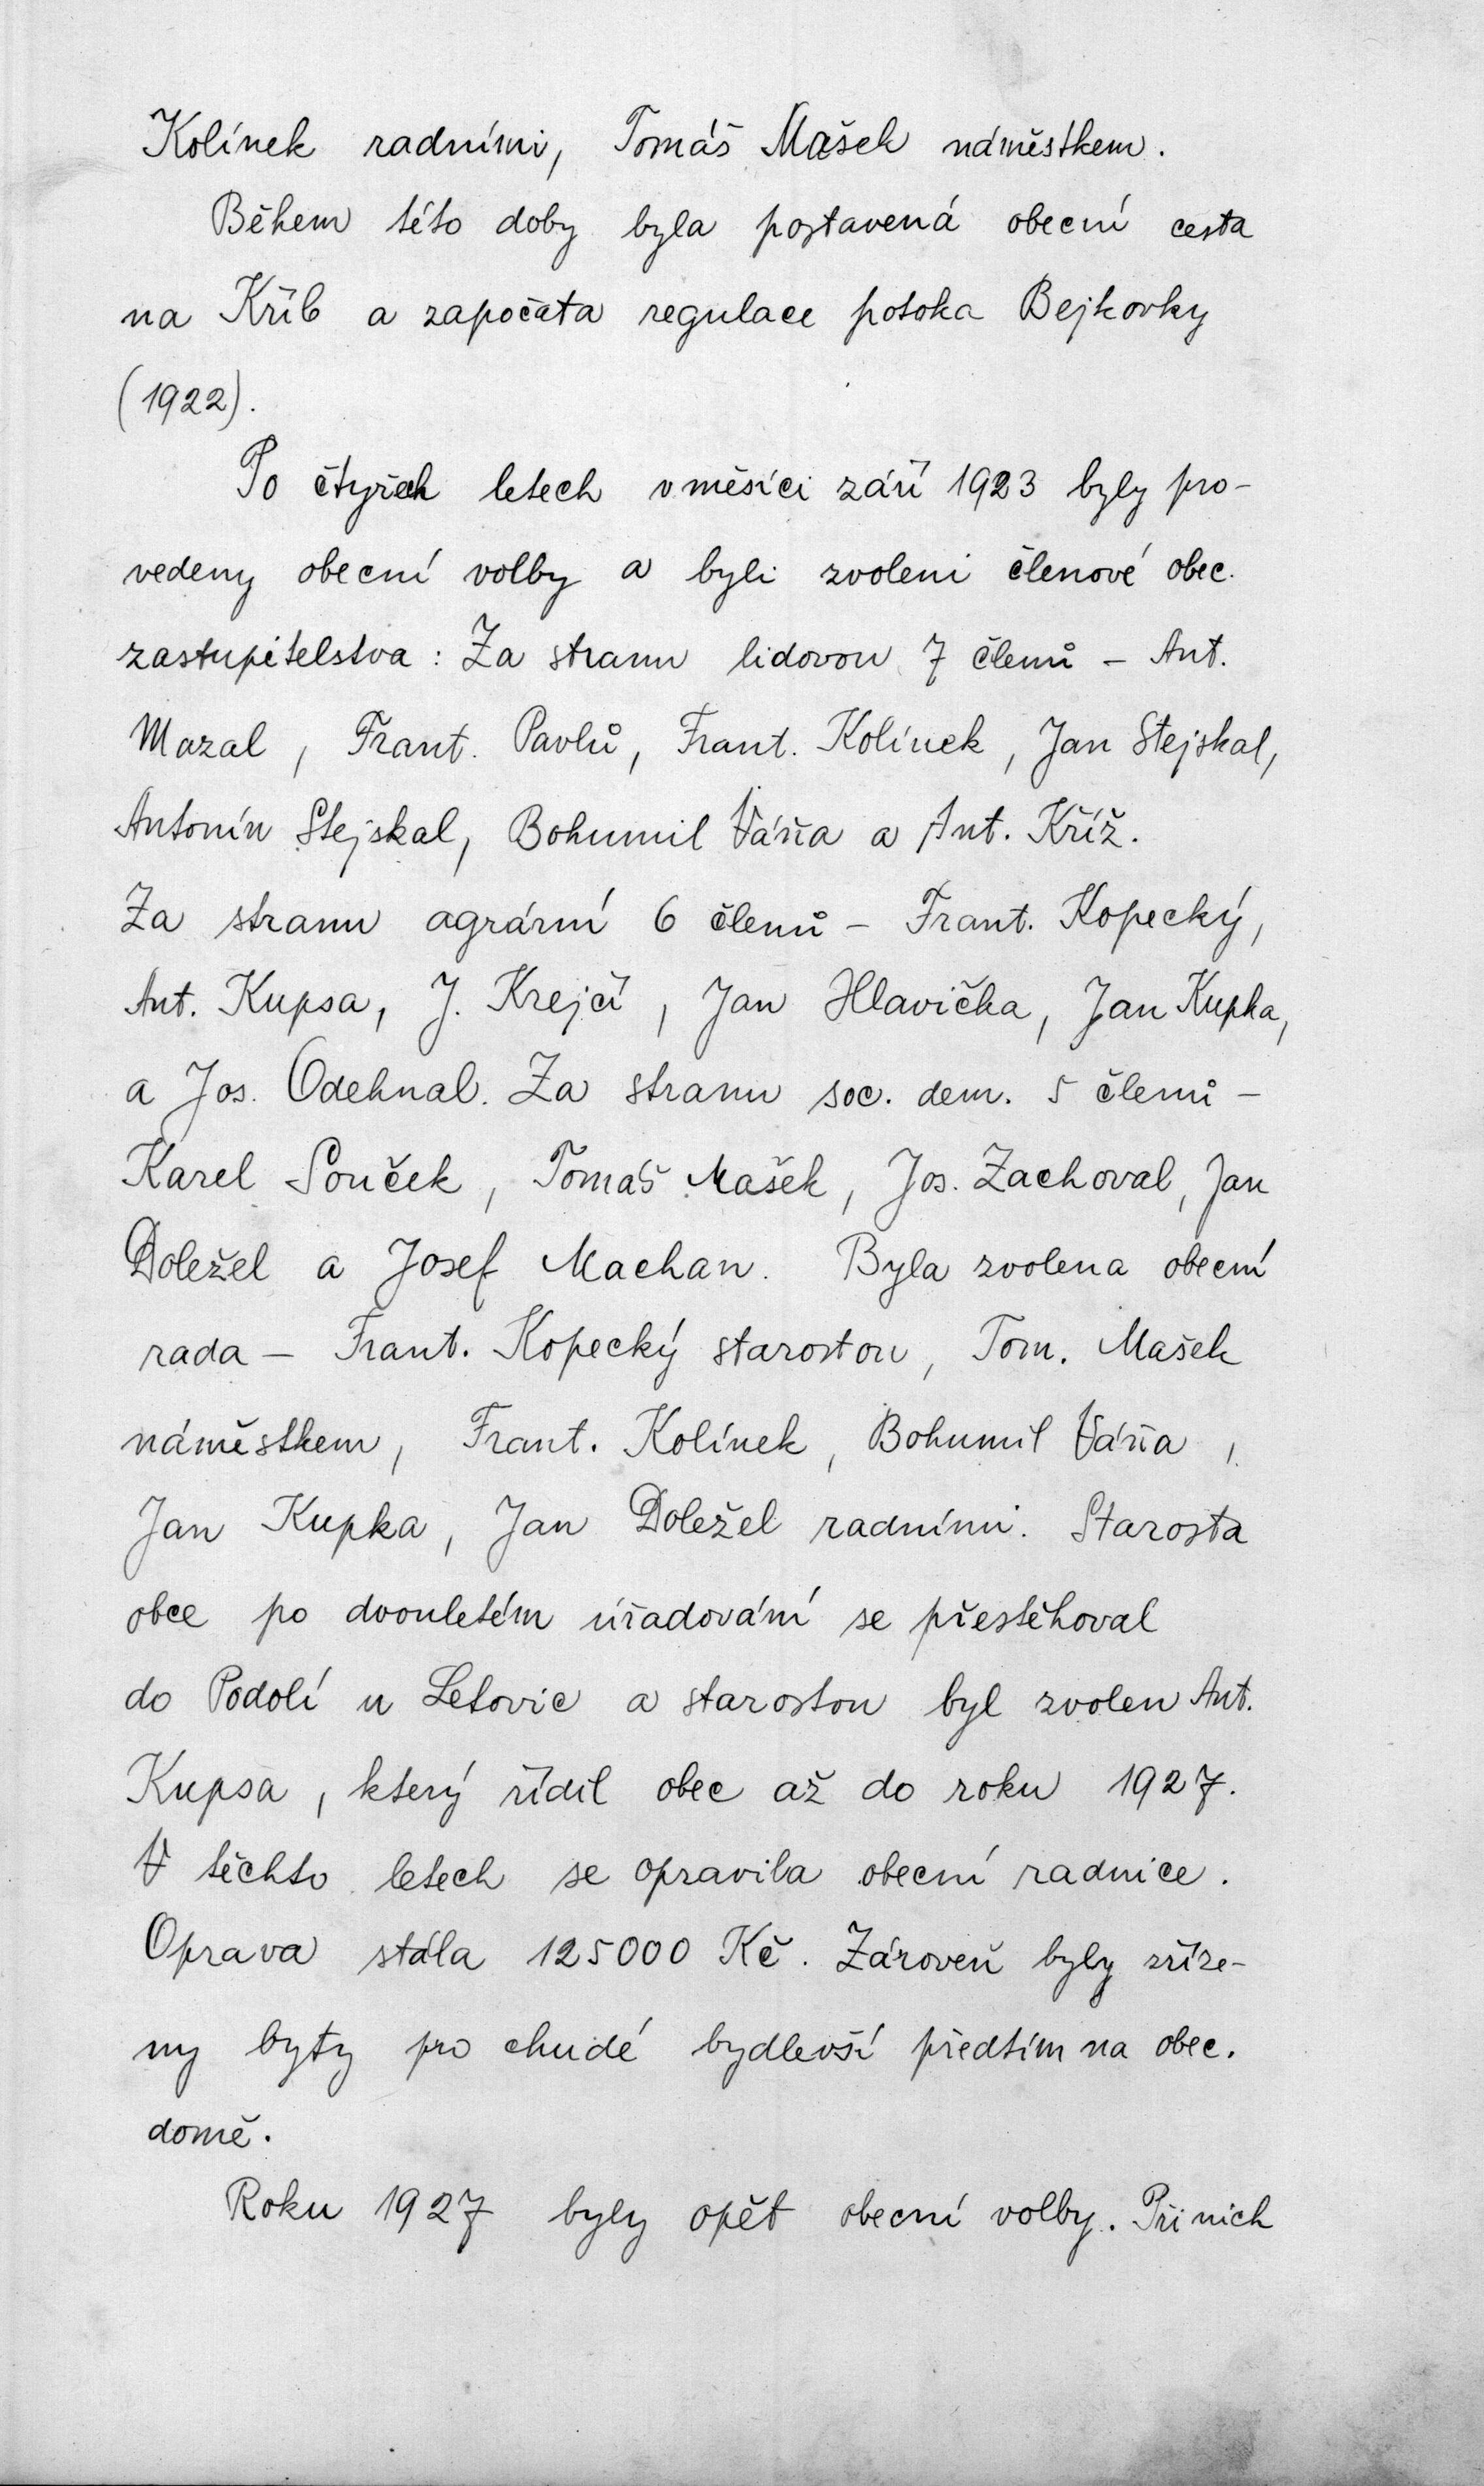 Kolínek radními, Tomáš Mašek náměstkem.
Během této doby byla postavená obecní cesta
na Kříb a započata regulace potoka Bejkovky
(1922).
Po čtyřech letech v měsíci září 1923 byly pro-
vedeny obecní volby a byli zvoleni členové obec.
zastupitelstva: Za stranu lidovou 7 členů - Ant.
Mazal, Frant. Pavlů, Frant. Kolínek, Jan Stejskal,
Antonín Stejskal, Bohumil Váňa a Ant. Kříž.
Za stranu agrární 6 členů - Frant. Kopecký,
Ant. Kupsa, J. Krejčí, Jan Hlavička, Jan Kupka,
a Jos. Odehnal. Za stranu soc. dem. 5 členů -
Karel Souček, Tomáš Mašek, Jos. Zachoval, Jan
Doležel a Josef Machan. Byla zvolena obecní
rada - Frant. Kopecký starostou, Tom. Mašek
náměstkem, Frant. Kolínek, Bohumil Váňa,
Jan Kupka, Jan Doležel radními. Starosta
obce po dvouletém úřadování se přestěhoval
do Podolí u Letovic a starostou byl zvolen Ant.
Kupsa, který řídil obec až do roku 1927.
V těchto letech se opravila obecní radnice.
Oprava stála 125000 Kč. Zároveň byly zříze-
ny byty pro chudé bydlevší předtím na obec.
domě.
Roku 1927 byly opět obecní volby. Při nich